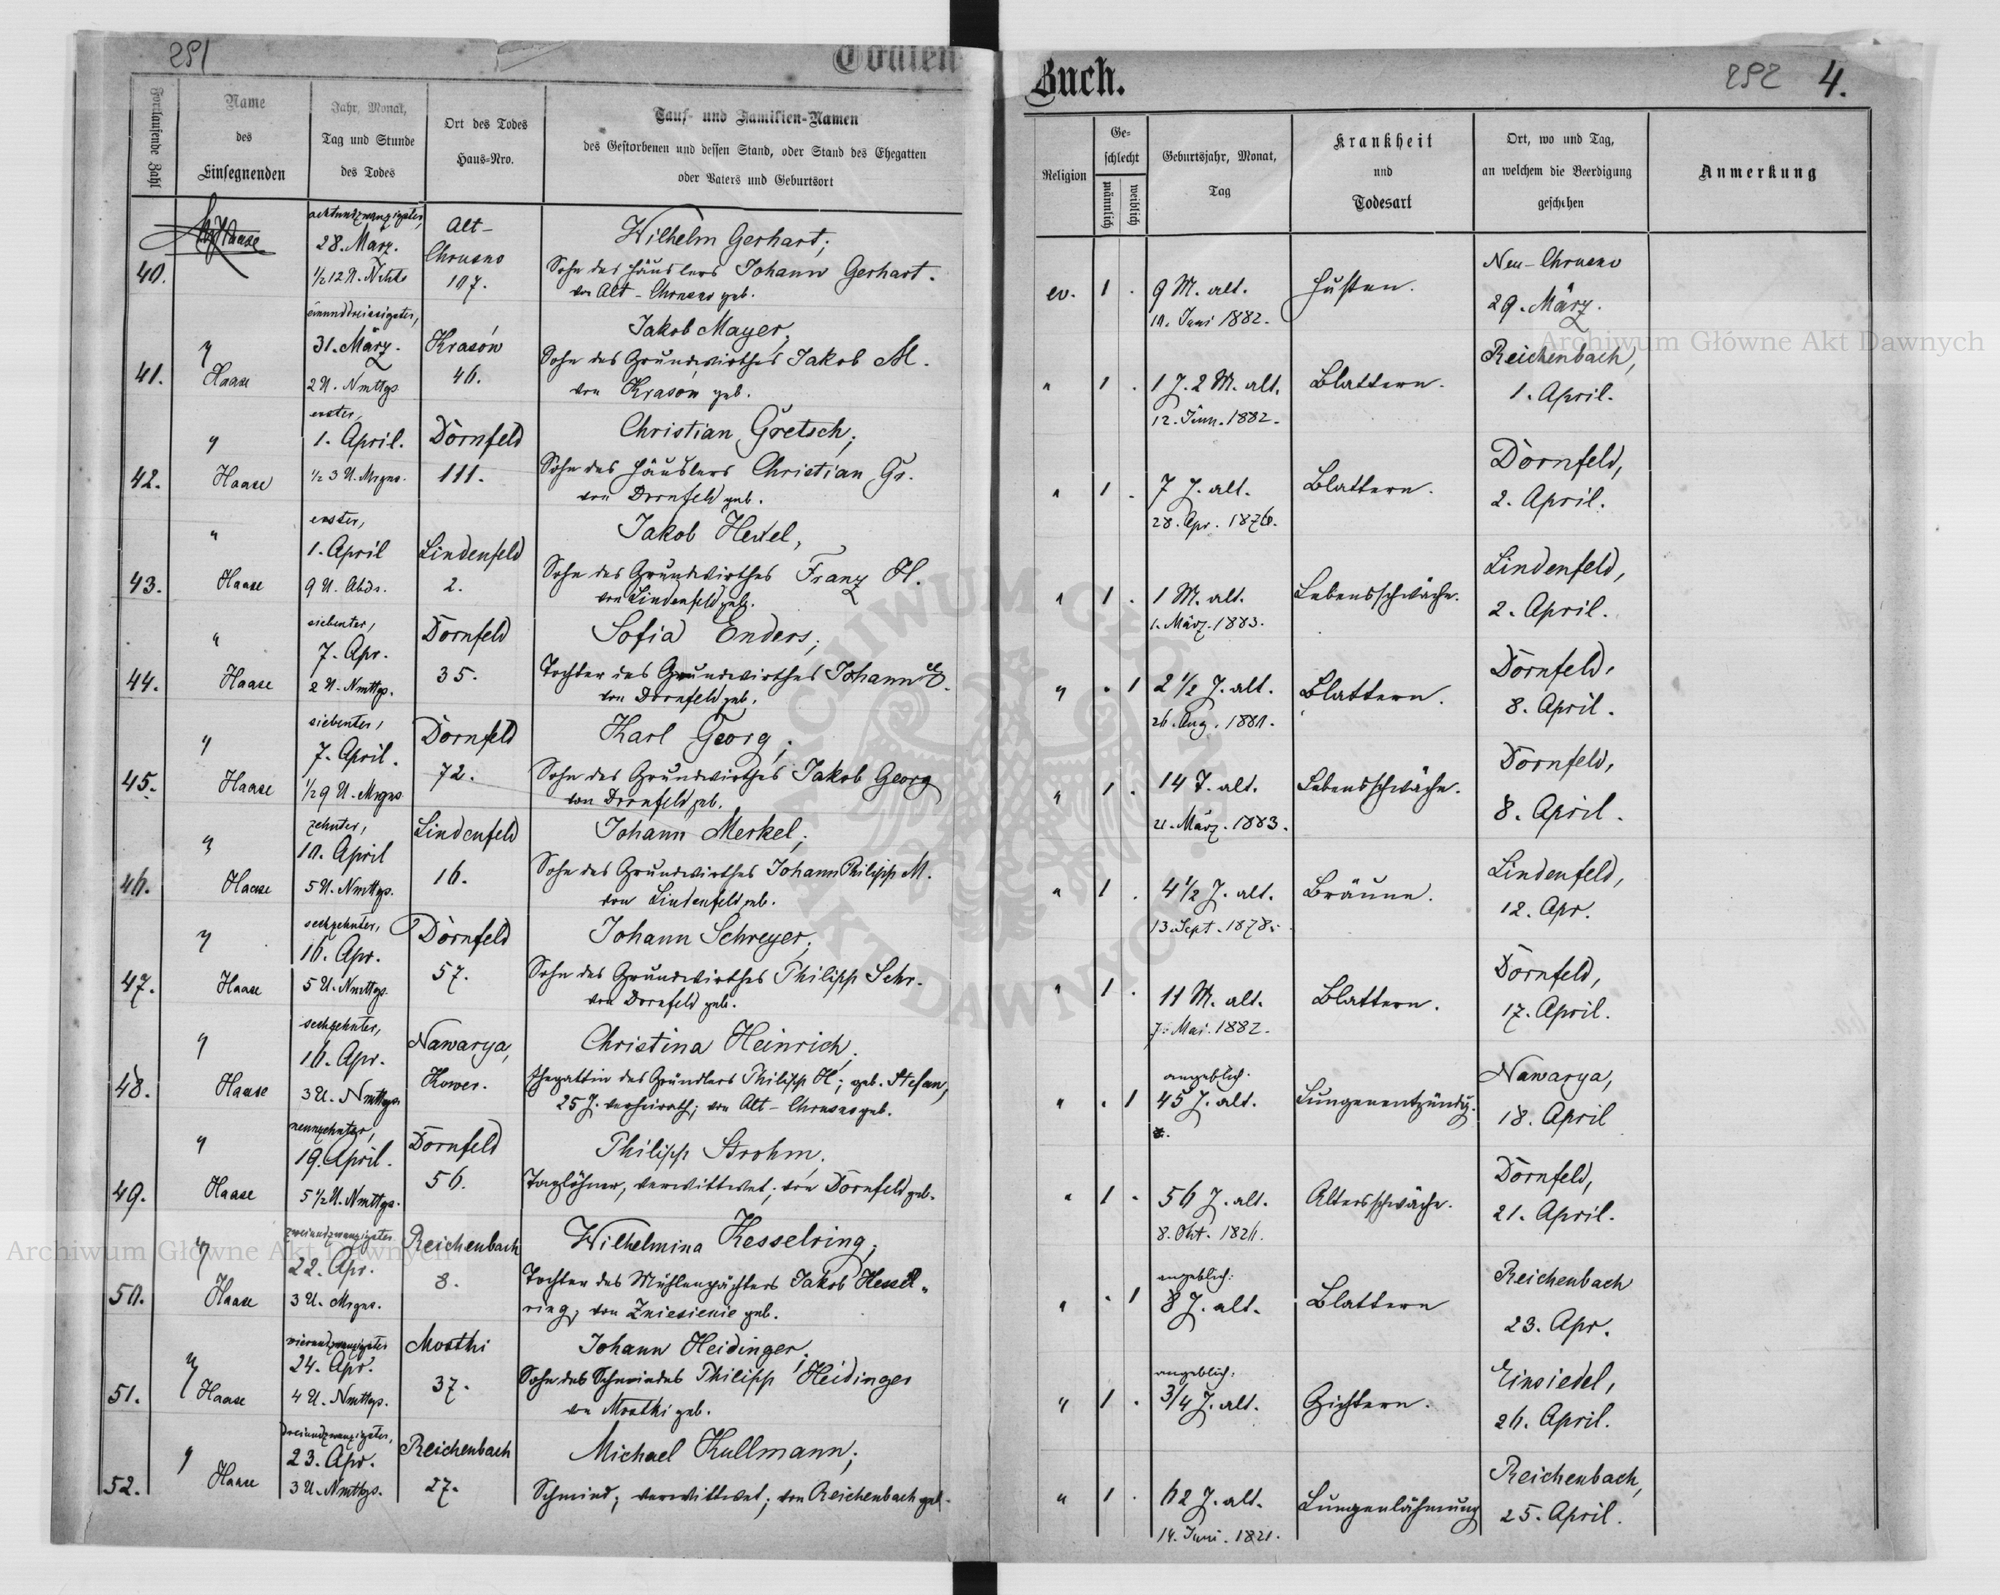 291
Todten
Buch.
292 4.
Fortlaufende Zahl
Name
des
Einsegnenden
Jahr, Monat,
Tag und Stunde
des Todes
Ort des Todes
Haus-Nro.
Tauf- und Familien-Namen
des Gestorbenen und dessen Stand, oder Stand des Ehegatten
oder Vaters und Geburtsort
Religion
Ge-
schlecht
männlich
weiblich
Geburtsjahr, Monat,
Tag
Krankheit
und
Todesart
Ort, wo und Tag,
an welchem die Beerdigung
geschehen
Anmerkung
40.
Haase
achtundzwanzigster,
28. März.
1/2 12 U. Nchts
Alt-
Chrusno
107.
Wilhelm Gerhart;
Sohn des Häuslers Johann Gerhart.
von Alt-Chrusno geb.
ev. 1 .
9 M. alt.
10. Juni 1882.
Husten.
Neu-Chrusno
29. März.
41.
" Haase
einunddreissigster,
31. März.
2 U. Nmttgs
Krasów
46.
Jakob Mayer,
Sohn des Grundwirthes Jakob M.
von Krasów geb.
" 1 .
1 J. 2 M. alt.
12. Jänn. 1882.
Blattern.
Reichenbach,
1. April.
42.
" Haase
erster,
1. April.
1/2 3 U. Mrgns.
Dornfeld
111.
Christian Gretsch;
Sohn des Häuslers Christian Gr.
von Dornfeld geb.
" 1 .
7 J. alt.
28. Apr. 1876.
Blattern.
Dornfeld,
2. April.
43.
" Haase
erster,
1. April
9 U. Abds.
Lindenfeld
2.
Jakob Hexel,
Sohn des Grundwirthes Franz H.
von Lindenfeld geb.
" 1 .
1 M. alt.
1. März. 1883.
Lebensschwäche.
Lindenfeld,
2. April.
44.
" Haase
siebenter,
7. Apr.
2 U. Nmttgs.
Dornfeld
35.
Sofia Enders;
Tochter des Grundwirthes Johann E.
von Dornfeld geb.
" . 1
2 1/2 J. alt.
26. Aug. 1880.
Blattern.
Dornfeld,
8. April.
45.
" Haase
siebenter,
7. April.
1/2 9 U. Mrgns
Dornfeld
72.
Karl Georg;
Sohn des Grundwirthes Jakob Georg
von Dornfeld geb.
" 1 .
14 T. alt.
21. März. 1883.
Lebensschwäche.
Dornfeld,
8. April.
46.
" Haase
zehnter,
10. April
5 U. Nmttgs.
Lindenfeld
16.
Johann Merkel;
Sohn des Grundwirthes Johann Philipp M.
von Lindenfeld geb.
" 1 .
4 1/2 J. alt.
13. Sept. 1878.
Bräune.
Lindenfeld,
12. Apr.
47.
" Haase
sechzehnter,
16. Apr.
5 U. Nmttgs.
Dornfeld
57.
Johann Schreyer,
Sohn des Grundwirthes Philipp Schr.
von Dornfeld geb.
" 1 .
11 M. alt.
7. Mai. 1882.
Blattern.
Dornfeld,
17. April.
48.
" Haase
sechzehnter,
16. Apr.
3 U. Nmttgs.
Nawarya,
Hower.
Christina Heinrich,
Ehegattin des Gründlers Philipp H; geb. Stefan,
25 J. verheirath; von Alt-Chrusno geb.
" . 1
angeblich.
45 J. alt.
Lungenentzündg.
Nawarya,
18. April
49.
" Haase
neunzehnter,
19. April.
5 1/2 U. Nmttgs.
Dornfeld
56.
Philipp Strohm,
Taglöhner, verwittwet; von Dornfeld geb.
" 1 .
56 J. alt.
8. Okt. 1826.
Altersschwäche.
Dornfeld,
21. April.
50.
" Haase
zweiundzwanzigster
22. Apr.
3 U. Mrgns.
Reichenbach
8.
Wilhelmina Kesselring,
Tochter des Mühlenpächters Jakob Kessel-
ring, von Zniesienie geb.
" . 1
angeblich:
8 J. alt.
Blattern
Reichenbach
23. Apr.
51.
" Haase
vierundzwanzigster
24. Apr.
4 U. Nmttgs.
Mostki
37.
Johann Heidinger,
Sohn des Schmiedes Philipp Heidinger
von Mostki geb.
" 1 .
angeblich:
3/4 J. alt.
Gichtern.
Einsiedel,
26. April.
52.
" Haase
dreiundzwanzigster,
23. Apr.
3 U. Nmttgs.
Reichenbach
27.
Michael Kullmann;
Schmied; verwittwet; von Reichenbach geb.
" 1 .
62 J. alt.
14. Juni. 1821.
Lungenlähmung
Reichenbach,
25. April.
Archiwum Główne Akt Dawnych
Archiwum Główne Akt Dawnych
ARCHIWUM GŁÓWNE AKT DAWNYCH